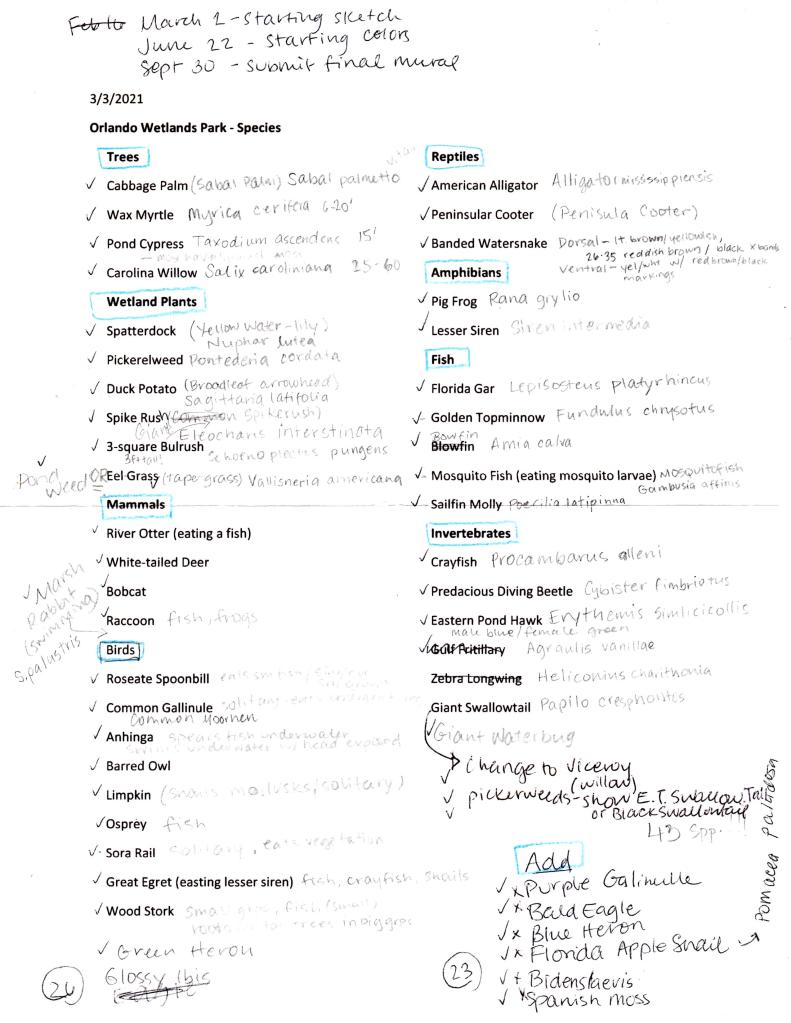 Feb 16 March 1 - Starting sketch
June 22 - Starting colors
Sept 30 - Submit final mural
3/3/2021
Orlando Wetlands Park - Species
Trees
✓ Cabbage Palm (Sabal Palm) Sabal palmetto
✓ Wax Myrtle Myrica cerifera 6-20'
✓ Pond Cypress Taxodium ascendens 15'
✓ Carolina Willow Salix caroliniana 25-60
Wetland Plants
✓ Spatterdock (Yellow Water-lily)
Nuphar lutea
✓ Pickerelweed Pontederia cordata
✓ Duck Potato (Broadleaf arrowhead)
Sagittaria latifolia
✓ Spike Rush (Common Spikerush)
Giant Eleocharis interstincta
✓ 3-square Bulrush Schoenoplectus pungens
3ft tall!
✓ Pond Weed OR Eel Grass (tape grass) Vallisneria americana
Mammals
✓ River Otter (eating a fish)
✓ White-tailed Deer
✓ Bobcat
✓ Raccoon fish, frogs
✓ Marsh
Rabbit
(swimming)
S. palustris
Birds
✓ Roseate Spoonbill eats sm fish/
✓ Common Gallinule solitary - eats
Common Moorhen
✓ Anhinga spears fish underwater
swims underwater w/ head exposed
✓ Barred Owl
✓ Limpkin (snails mollusks/solitary)
✓ Osprey fish
✓ Sora Rail solitary, eats vegetation
✓ Great Egret (easting lesser siren) fish, crayfish, snails
✓ Wood Stork small fish, (small)
roosts in tall trees
✓ Green Heron
Glossy Ibis
26
Reptiles
✓ American Alligator Alligator mississippiensis
✓ Peninsular Cooter (Penisula Cooter)
✓ Banded Watersnake Dorsal - lt brown/yellowish,
26-35 reddish brown / black x bands
ventral - yel/wht w/ red brown/black
markings
Amphibians
✓ Pig Frog Rana grylio
✓ Lesser Siren Siren intermedia
Fish
✓ Florida Gar Lepisosteus platyrhincus
✓ Golden Topminnow Fundulus chrysotus
Bowfin
✓ Blowfin Amia calva
✓ Mosquito Fish (eating mosquito larvae) Mosquitofish
Gambusia affinis
✓ Sailfin Molly Poecilia latipinna
Invertebrates
✓ Crayfish Procambarus alleni
✓ Predacious Diving Beetle Cybister fimbriotus
✓ Eastern Pond Hawk Erythemis simlicicollis
male blue/female green
✓ Gulf Fritillary Agraulis vanillae
Zebra Longwing Heliconius charithonia
Giant Swallowtail Papilo cresphontes
✓ Giant Waterbug
✓ Change to Viceroy
(willow)
✓ pickerweeds - show E.T. Swallow Tail
✓ or Black Swallowtail
43 Spp.
Add
✓ x Purple Galinulle
✓ x Bald Eagle
✓ x Blue Heron
✓ x Florida Apple Snail → Pomacea paludosa
✓ + Bidens laevis
✓ x Spanish moss
23